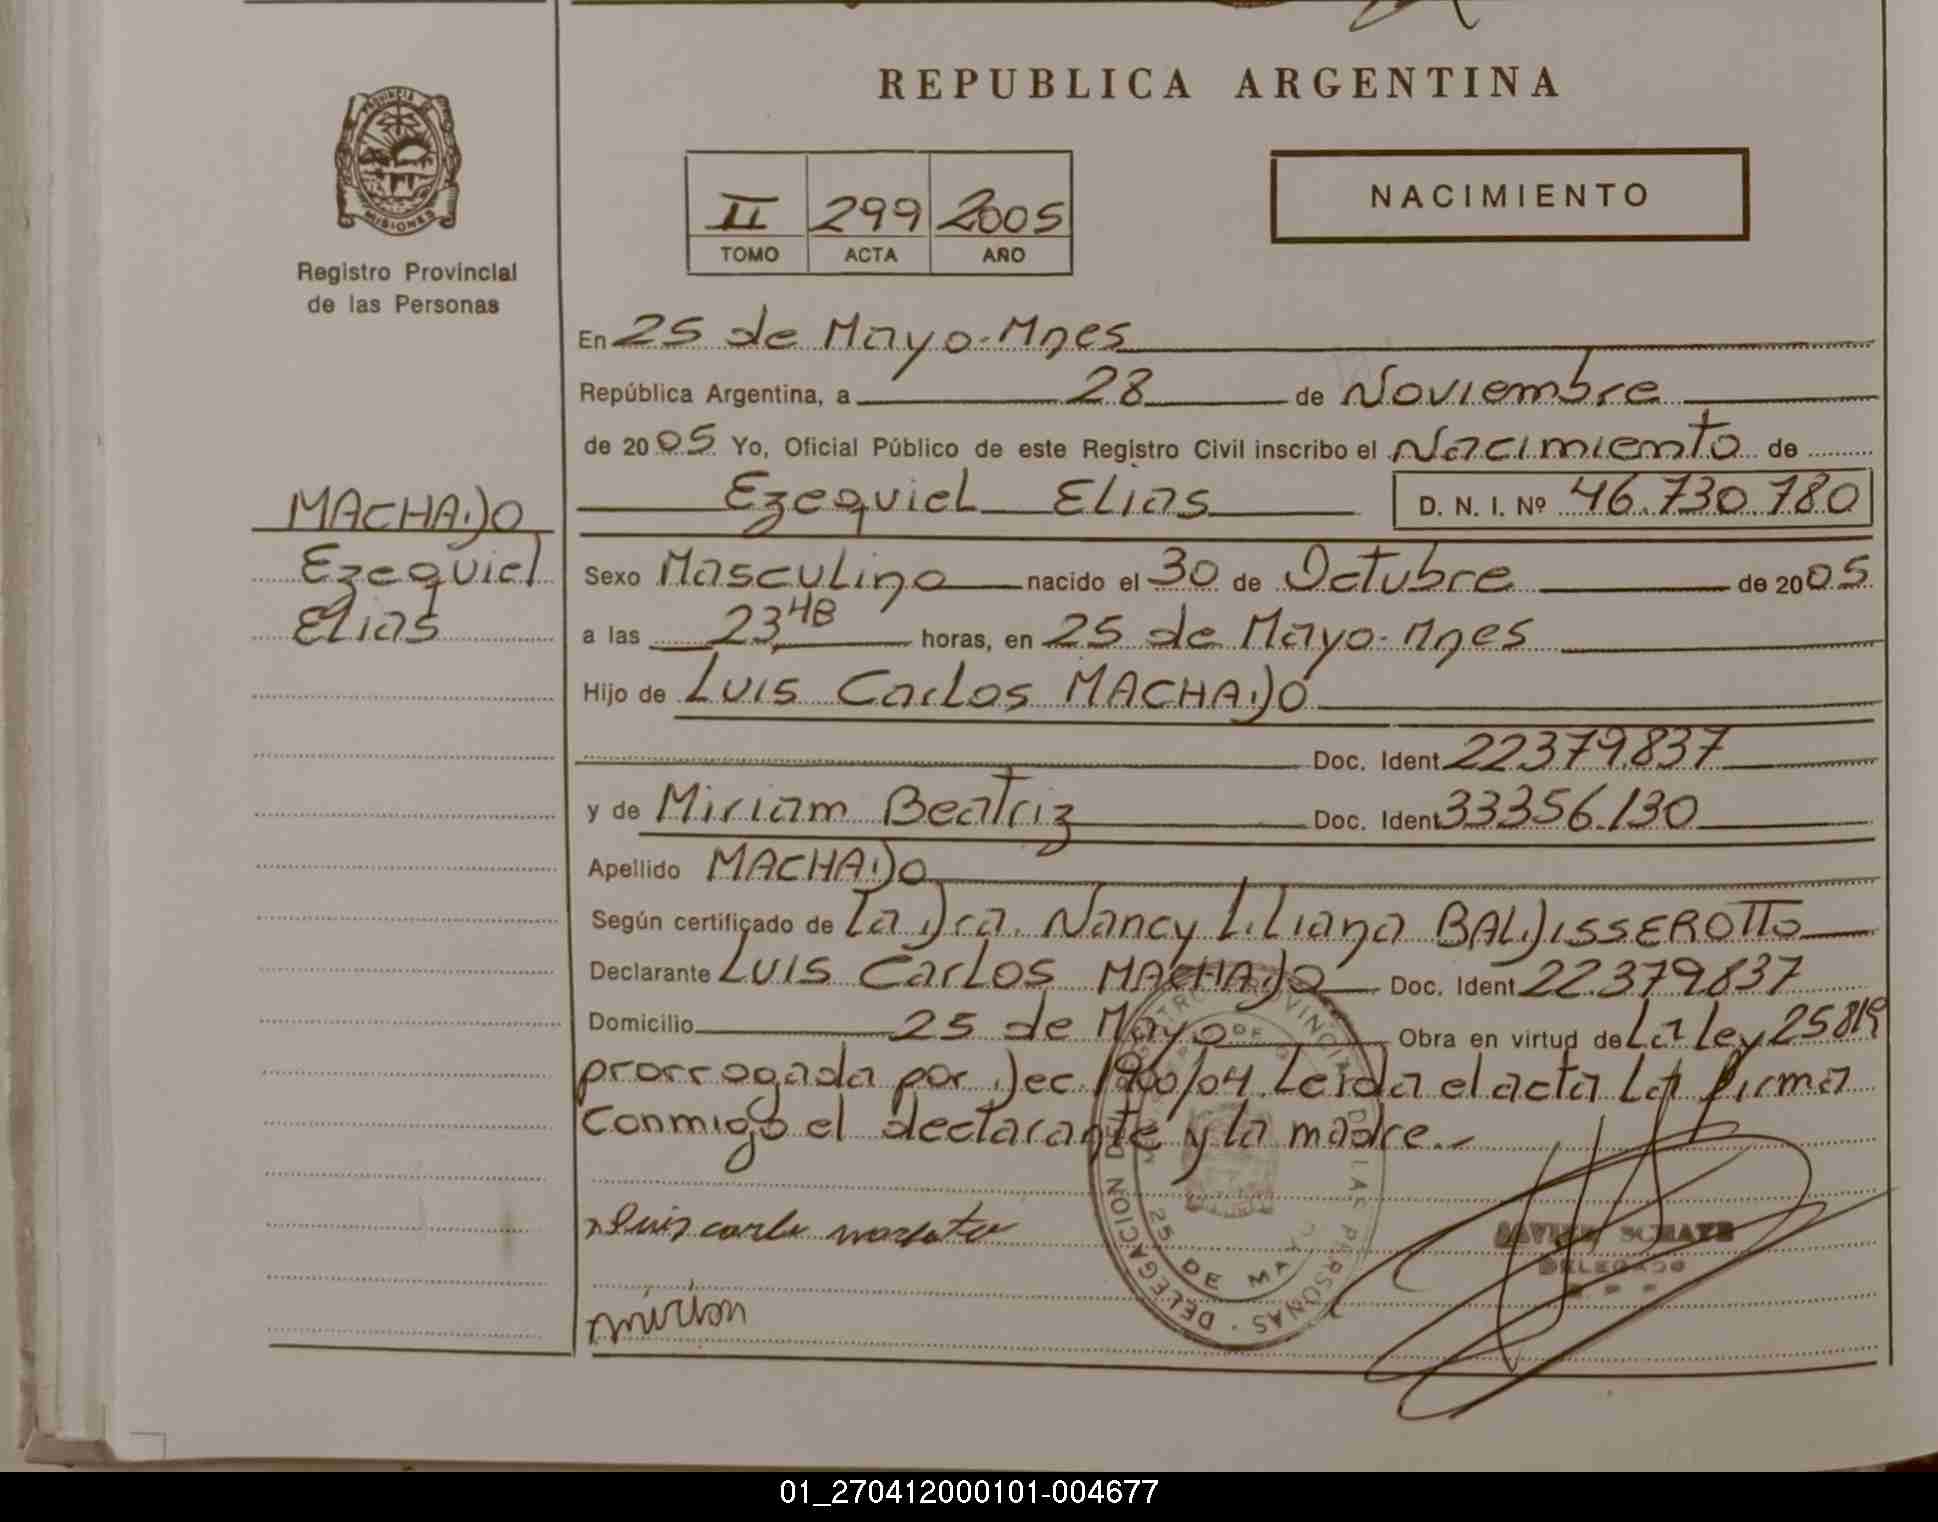 REPUBLICA ARGENTINA
PROVINCIA DE
MISIONES
Registro Provincial
de las Personas
II 299 2005
TOMO ACTA AÑO
NACIMIENTO
En 25 de Mayo-Mnes
República Argentina, a 28 de Noviembre
de 2005 Yo, Oficial Público de este Registro Civil inscribo el Nacimiento de
Ezequiel Elias D. N. I. Nº 46.730.780
MACHADO
Ezequiel
Elias
Sexo Masculino nacido el 30 de Octubre de 2005
a las 23 48 horas, en 25 de Mayo-Mnes
Hijo de Luis Carlos MACHADO
Doc. Ident 22379.837
y de Miriam Beatriz Doc. Ident 33356.130
Apellido MACHADO
Según certificado de La Dra. Nancy Liliana BALDISSEROTTO
Declarante Luis Carlos MACHADO Doc. Ident 22.379.837
Domicilio 25 de Mayo Obra en virtud de La Ley 25819
prorrogada por Dec 1900/04. Leida el acta La firma
conmigo el declarante y la madre.-
DELEGACION DEL REGISTRO PROVINCIAL DE LAS PERSONAS
25 DE MAYO
JAVIER
DELEGADO
miriam
01_270412000101-004677